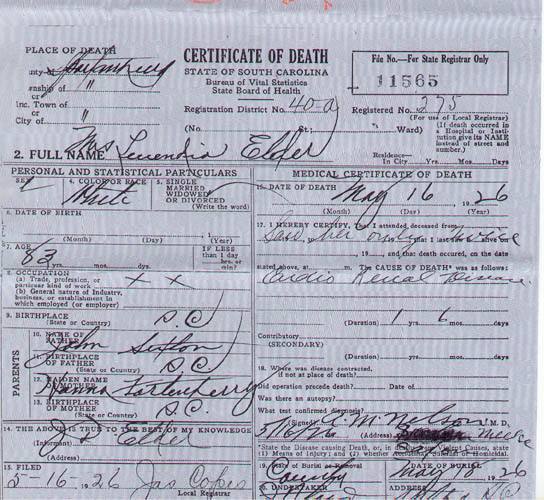 PLACE OF DEATH
CERTIFICATE OF DEATH
STATE OF SOUTH CAROLINA
Bureau of Vital Statistics
State Board of Health
File No.—For State Registrar Only
11565
unty of Spartanburg
wnship of "
or
inc. Town of
or
City of "
Registration District No. 40-a
Registered No. 275
(For use of Local Registrar)
(No. St.; Ward)
(If death occurred in a Hospital or Institution give its NAME instead of street and number.)
2. FULL NAME Mrs Elder
Residence—
In City Yrs. Mos. Days
PERSONAL AND STATISTICAL PARTICULARS
SEX
4. COLOR OR RACE
White
5. SINGLE
MARRIED
WIDOWED
OR DIVORCED
(Write the word)
6. DATE OF BIRTH
(Month) (Day) (Year)
7. AGE
83 yrs. mos. dys.
IF LESS than 1 day
hrs. or min?
8. OCCUPATION
(a) Trade, profession, or
particular kind of work x x
(b) General nature of Industry,
business, or establishment in
which employed (or employer)
9. BIRTHPLACE
(State or Country) S.C.
PARENTS
10. NAME OF
FATHER John Sexton
11. BIRTHPLACE
OF FATHER
(State or Country) S.C.
12. MAIDEN NAME
OF MOTHER Hanna
13. BIRTHPLACE
OF MOTHER
(State or Country) S.C.
14. THE ABOVE IS TRUE TO THE BEST OF MY KNOWLEDGE
(Informant) Elder
(Address)
15. FILED
5-16-26 Jas Copes
Local Registrar
MEDICAL CERTIFICATE OF DEATH
DATE OF DEATH
May 16 1926
(Month) (Day) (Year)
17. I HEREBY CERTIFY, That I attended, deceased from
Saw her only twice
that I last saw alive on
, 19 , and that death occurred, on the date
stated above, at m. The CAUSE OF DEATH* was as follows:
Cardio Renal Disease
(Duration) 1 yrs. 6 mos. days
Contributory
(SECONDARY)
(Duration) yrs. mos. days
18. Where was disease contracted,
if not at place of death?
Did operation precede death? Date of
Was there an autopsy?
What test confirmed diagnosis?
(Signed) M. Nelson M.D.
(Address)
*State the Disease causing Death, or, in deaths from Violent Causes, state (1) Means of injury; and (2) whether Accidental, Suicidal or Homicidal.
19. Place of Burial or Removal
DATE OF BURIAL
May 18 1926
20. UNDERTAKER
ADDRESS